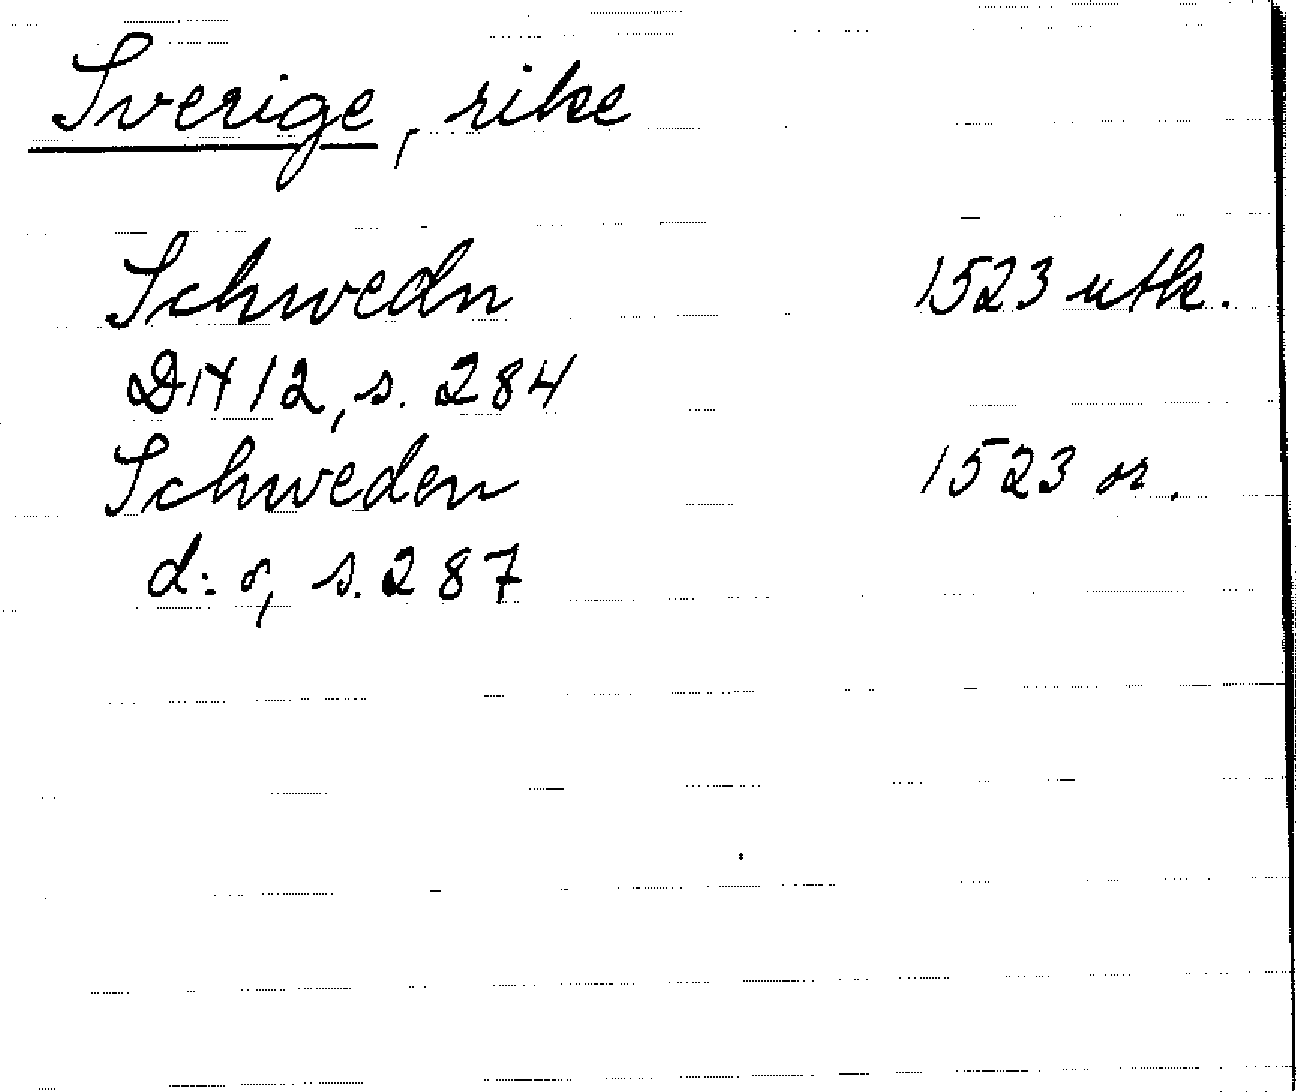 Sverige, rike
Schwedn 1523 utk.
DN 12, s. 284
Schweden 1523 or.
d:o, s. 287